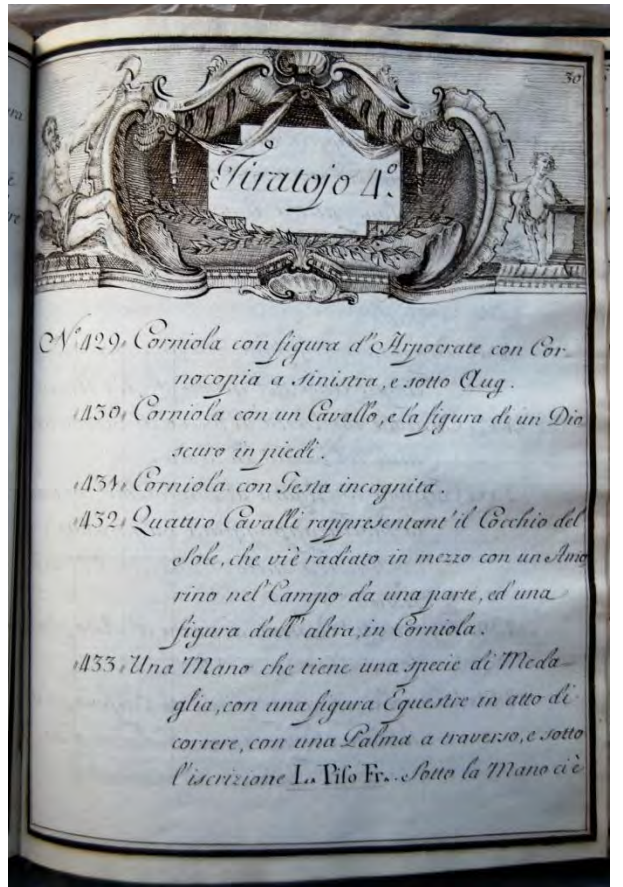 30
Tiratojo 4.º
N.º 429. Corniola con figura d'Arpocrate con Cor-
nocopia a sinistra, e sotto Aug.
430. Corniola con un Cavallo, e la figura di un Dio
scuro in piedi.
431. Corniola con Testa incognita.
432. Quattro Cavalli rappresentant'il Cocchio del
Sole, che vi è radiato in mezzo con un Amo
rino nel Campo da una parte, ed'una
figura dall'altra, in Corniola.
433. Una Mano che tiene una specie di Meda-
glia, con una figura Equestre in atto di
correre, con una Palma a traverso, e sotto
l'iscrizione L. Piso Fr. Sotto la Mano ci è